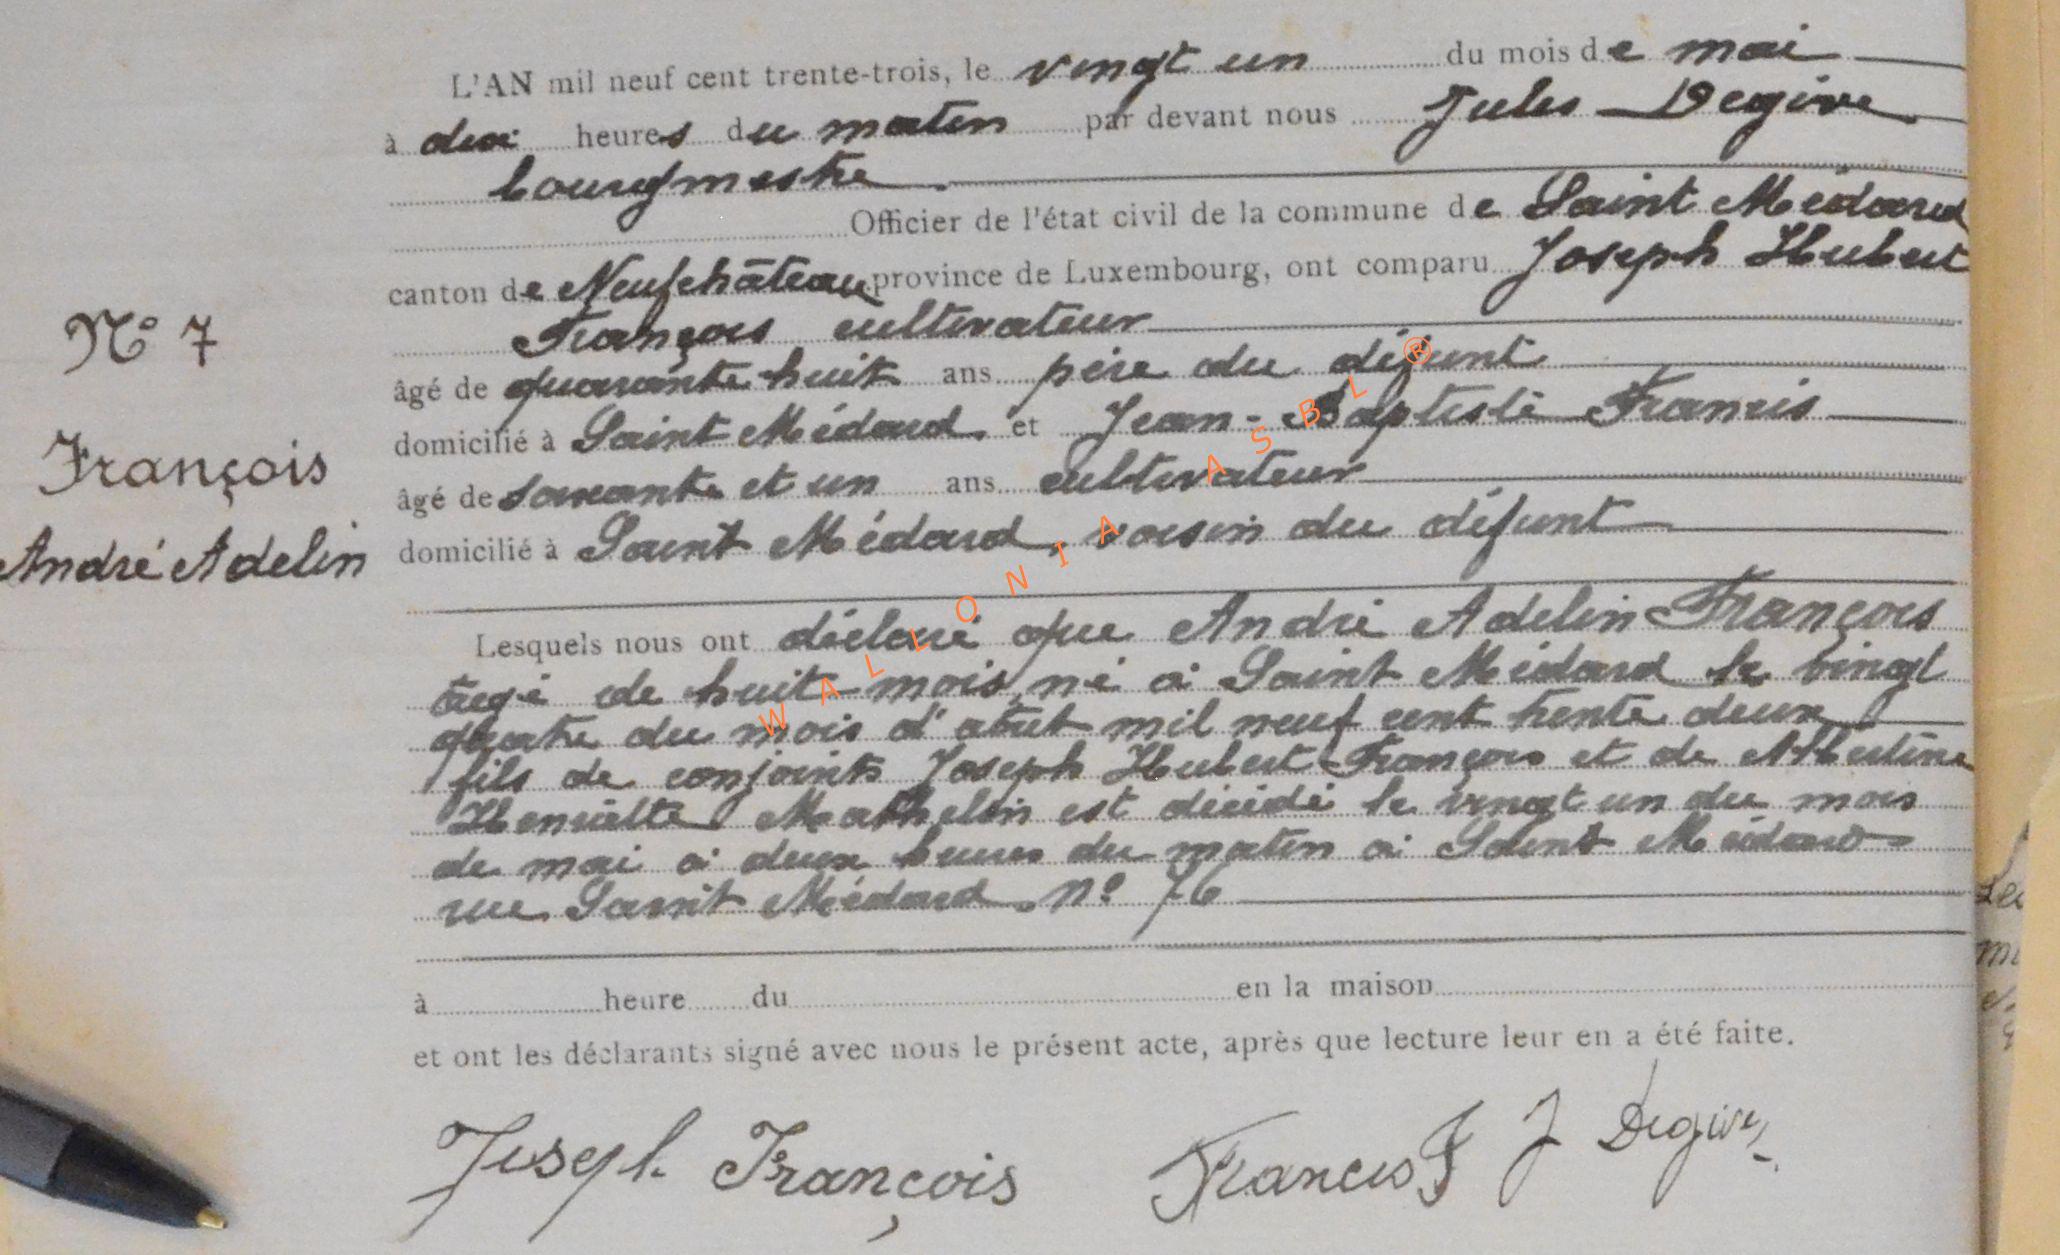 L'AN mil neuf cent trente-trois, le vingt un du mois de mai
à dix heures du matin par devant nous Jules Degive
bourgmestre
Officier de l'état civil de la commune de Saint Médard
canton de Neufchâteau province de Luxembourg, ont comparu Joseph Hubert
François cultivateur
N° 7
âgé de quarante huit ans père du défunt
domicilié à Saint Médard, et Jean-Baptiste Francis
François
âgé de soixante et un ans cultivateur
domicilié à Saint Médard, voisin du défunt
André Adelin
Lesquels nous ont déclaré que André Adelin François
âgé de huit mois, né à Saint Médard le vingt
quatre du mois d'août mil neuf cent trente deux
fils de conjoints Joseph Hubert François et de Albertine
Henriette Mathelin est décédé le vingt un du mois
de mai à deux heures du matin à Saint Médard
rue Saint Médard n° 76
à heure du en la maison
et ont les déclarants signé avec nous le présent acte, après que lecture leur en a été faite.
Joseph François Francis J J Degive
WALLONIA ASBL ®